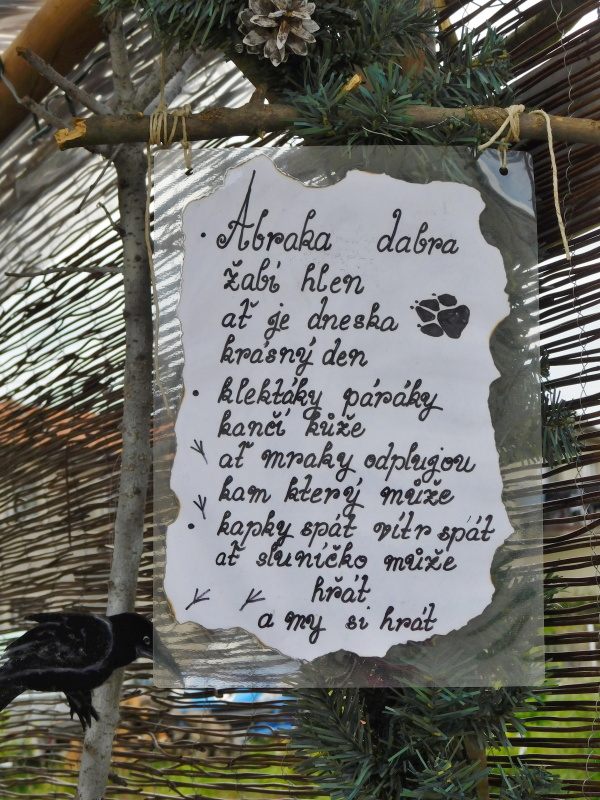 • Abraka dabra
žabí hlen
ať je dneska
krásný den
• klektáky páráky
kančí kůže
ať mraky odplujou
kam který může
• kapky spát vítr spát
ať sluníčko může
hřát
a my si hrát